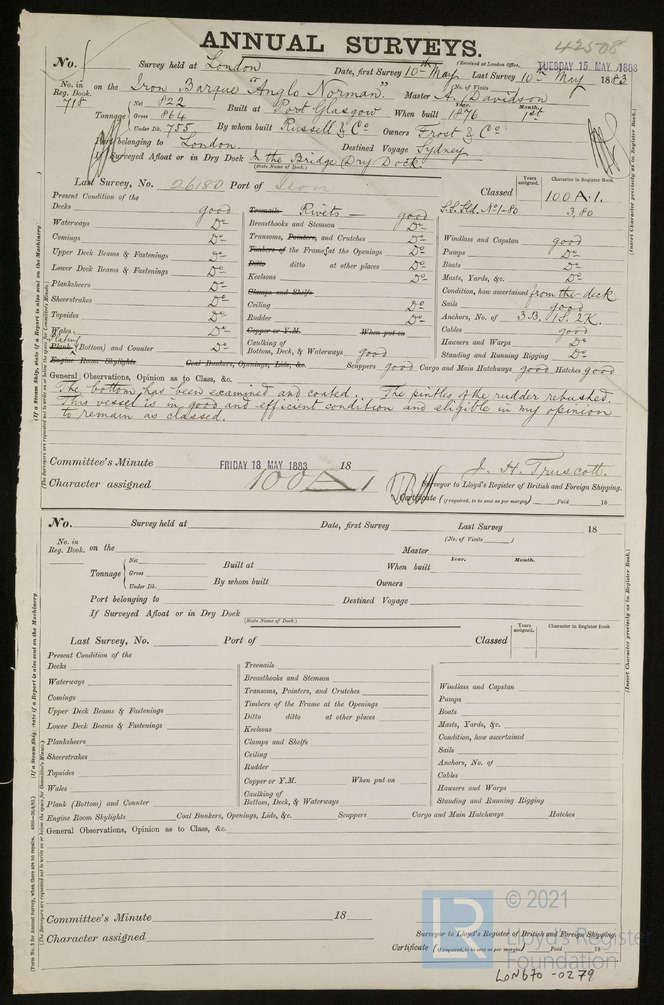 ANNUAL SURVEYS.
42508
No. Survey held at London Date, first Survey 10th May Last Survey 10th May 1883
(Received at London Office, TUESDAY 15 MAY 1883
No. in Reg. Book. 718 on the Iron Barque "Anglo Norman." Master A. Davidson
(No. of Visits
Tonnage Net 822 Gross 864 Under Dk. 755 Built at Port Glasgow When built Year. 1876 Month. 1st
By whom built Russell & Co Owners Frost & Co
Port belonging to London. Destined Voyage Sydney
If Surveyed Afloat or in Dry Dock In the Bridge Dry Dock.
(State Name of Dock.)
Last Survey, No. 26180 Port of Classed Years assigned. Character in Register Book. 100 A.1.
S.S. Lld. No 1-80 3,80
Present Condition of the
Decks good Treenails Rivets good
Waterways Do Breasthooks and Stemson Do
Comings Do Transoms, Pointers, and Crutches Do Windlass and Capstan good
Upper Deck Beams & Fastenings Do Timbers of the Frames at the Openings Do Pumps Do
Lower Deck Beams & Fastenings Do Ditto ditto at other places Do Boats Do
Planksheers Do Keelsons Do Masts, Yards, &c. Do
Sheerstrakes Do Clamps and Shelfs Condition, how ascertained from the deck
Topsides Do Ceiling Do Sails good
Wales Do Rudder Do Anchors, No. of 3B. 1S. 2K.
Plank Plating (Bottom) and Counter Do Copper or Y.M. When put on Cables good
Caulking of Bottom, Deck, & Waterways good Hawsers and Warps Do
Standing and Running Rigging Do
Engine Room Skylights Coal Bunkers, Openings, Lids, &c. Scuppers good Cargo and Main Hatchways good Hatches good
General Observations, Opinion as to Class, &c.
The bottom has been examined and coated. The pintles of the rudder rebushed.
This vessel is in good and efficient condition and eligible in my opinion
to remain as classed.
Committee's Minute FRIDAY 18 MAY 1883 18
J. H. Truscott.
Character assigned 100 A 1 Surveyor to Lloyd's Register of British and Foreign Shipping.
Certificate (if required, to be sent as per margin) Paid 18
No. Survey held at Date, first Survey Last Survey 18
(No. of Visits )
No. in Reg. Book. on the Master
Tonnage Net Gross Under Dk. Built at When built Year. Month.
By whom built Owners
Port belonging to Destined Voyage
If Surveyed Afloat or in Dry Dock
(State Name of Dock.)
Last Survey, No. Port of Classed Years assigned. Character in Register Book.
Present Condition of the
Decks Treenails
Waterways Breasthooks and Stemson
Comings Transoms, Pointers, and Crutches Windlass and Capstan
Upper Deck Beams & Fastenings Timbers of the Frame at the Openings Pumps
Lower Deck Beams & Fastenings Ditto ditto at other places Boats
Planksheers Keelsons Masts, Yards, &c.
Sheerstrakes Clamps and Shelfs Condition, how ascertained
Topsides Ceiling Sails
Wales Rudder Anchors, No. of
Plank (Bottom) and Counter Copper or Y.M. When put on Cables
Caulking of Bottom, Deck, & Waterways Hawsers and Warps
Standing and Running Rigging
Engine Room Skylights Coal Bunkers, Openings, Lids, &c. Scuppers Cargo and Main Hatchways Hatches
General Observations, Opinion as to Class, &c.
Committee's Minute 18
Character assigned Surveyor to Lloyd's Register of British and Foreign Shipping.
Certificate (if required, to be sent as per margin) Paid 18
(If a Steam Ship, state if a Report is also sent on the Machinery
(The Surveyors are requested not to write on or below the space for Committee's Minute.)
(Insert Character precisely as in Register Book.)
(If a Steam Ship, state if a Report is also sent on the Machinery
(The Surveyors are requested not to write on or below the space for Committee's Minute.)
(Insert Character precisely as in Register Book.)
LR © 2021
Lloyd's Register
Foundation
LON670-0279